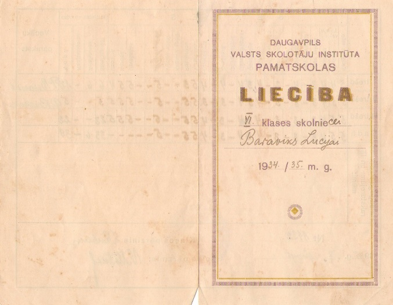 DAUGAVPILS
VALSTS SKOLOTĀJU INSTITŪTA
PAMATSKOLAS
LIECĪBA
VI klases skolniecei
Baraviks Lucijai
1934/35. m. g.